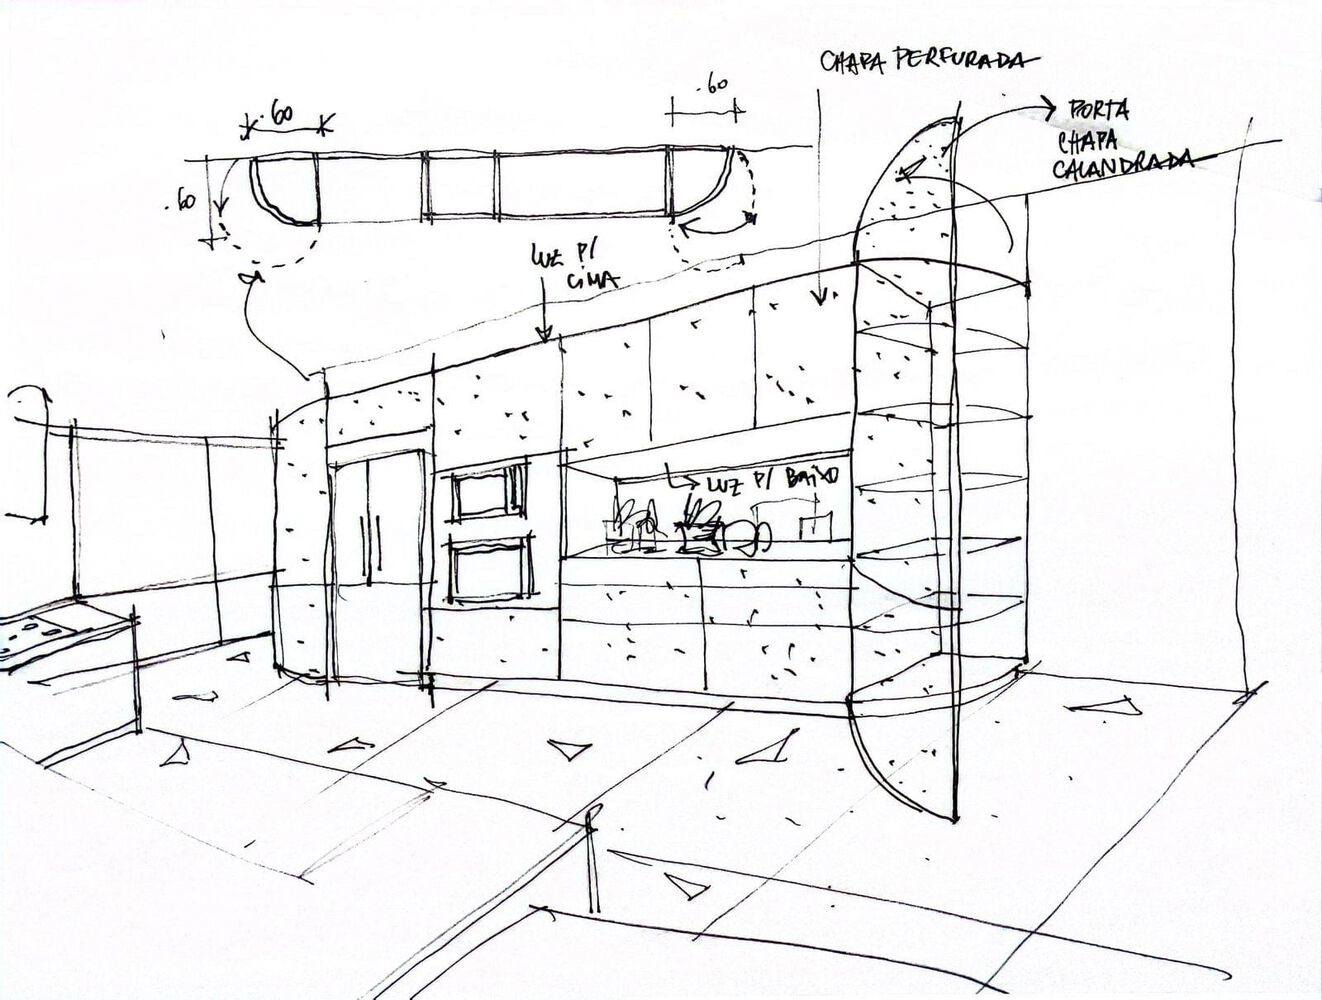 CHAPA PERFURADA
.60
.60
PORTA
CHAPA
CALANDRADA
.60
LUZ P/
CIMA
LUZ P/ BAIXO